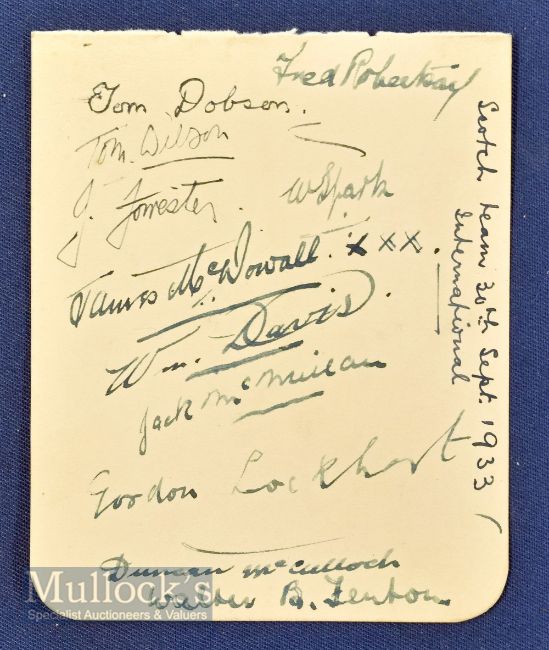 Fred Robertson
Tom Dobson.
Tom. Wilson
J. Forrester.
W Spark
James McDowall. X X X.
Wm. Davis.
Jack McMillan
Gordon Lockhart
Duncan McCulloch
Walter B. Fenton.
Scotch team 30th Sept. 1933
International
Mullock's
Specialist Auctioneers & Valuers